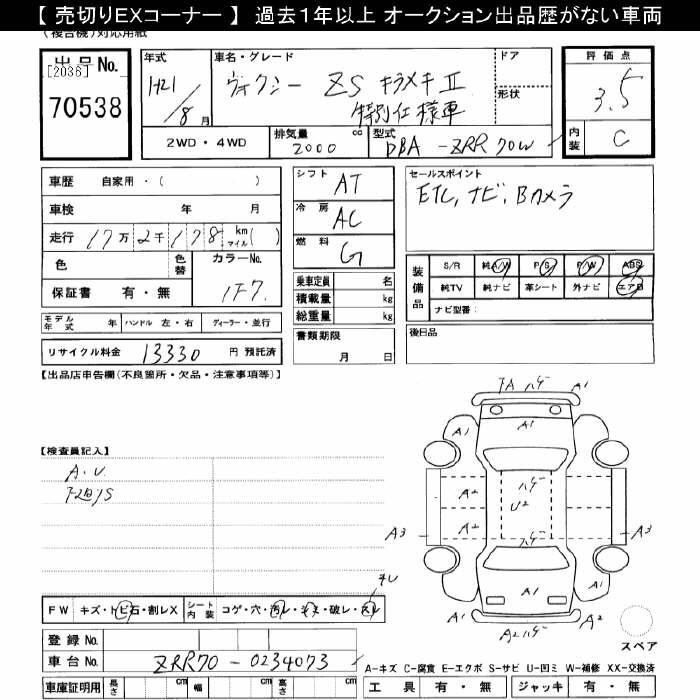 【 売切りEXコーナー 】 過去1年以上 オークション出品歴がない車両
(複合機)対応用紙
出品No.
[2036]
70538
年式
H21/8月
車名・グレード
ヴォクシー ZS キラメキⅡ
特別仕様車
ドア
形状
評価点
3.5
内装 C
2WD・4WD
排気量 2000 cc
型式 DBA-ZRR70W
車歴 自家用・( )
車検 年 月
走行 17万2千178 km マイル( )
色
色替
カラーNo.
1F7
保証書 有・無
シフト AT
冷房 AC
燃料 G
乗車定員 名
積載量 kg
総重量 kg
書類期限
月 日
セールスポイント
ETC, ナビ, Bカメラ
装備品
S/R 純A/W P/S P/W ABS
純TV 純ナビ 革シート 外ナビ エアB
ナビ型番:
後日品
モデル年式 年 ハンドル 左・右 ディーラー・並行
リサイクル料金 13330 円 預託済
【出品店申告欄(不良箇所・欠品・注意事項等)】
【検査員記入】
A.U
FA ハゲ A1
A1 A1 A1
ハゲ
A2 U2 ハゲ A2
A2 A2
A3 A3
A1 A1
A1
A2 A2 ハゲ A2
スペア
FW キズ・トビ石・割レX シート内装 コゲ・穴・汚レ・シミ・破レ・スレ
登録No.
車台No. ZRR70-0234073
車庫証明用 長さ cm 幅 cm 高さ cm
A-キズ C-腐食 E-エクボ S-サビ U-凹ミ W-補修 XX-交換済
工具 有・無 ジャッキ 有・無